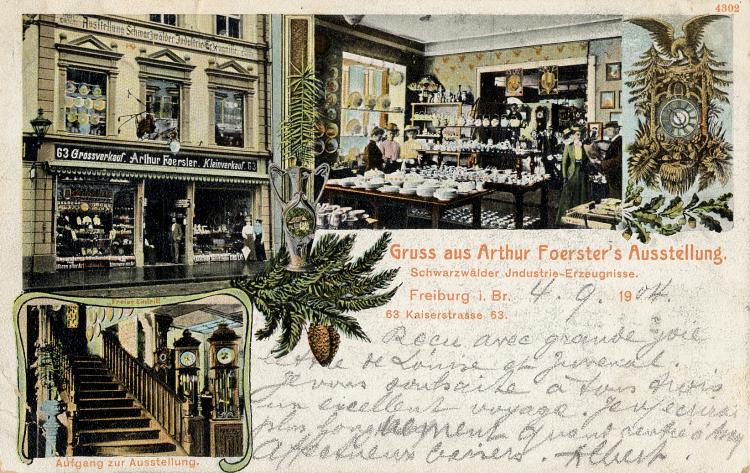 4302
Ausstellung Schwarzwälder Industrie-Erzeugnisse
63 Grossverkauf. Arthur Foerster. Kleinverkauf. 63
Gruss aus Arthur Foerster's Ausstellung.
Schwarzwälder Jndustrie-Erzeugnisse.
Freiburg i. Br. 4. 9. 1904.
63 Kaiserstrasse 63.
Freier Eintritt
Aufgang zur Ausstellung.
Recu avec grande joie
lettre de Louise et Juvenal.
Je vous souhaite à tous trois
un excellent voyage. Je écrirai
plus longuement quand
Affectueux baisers. Albert.